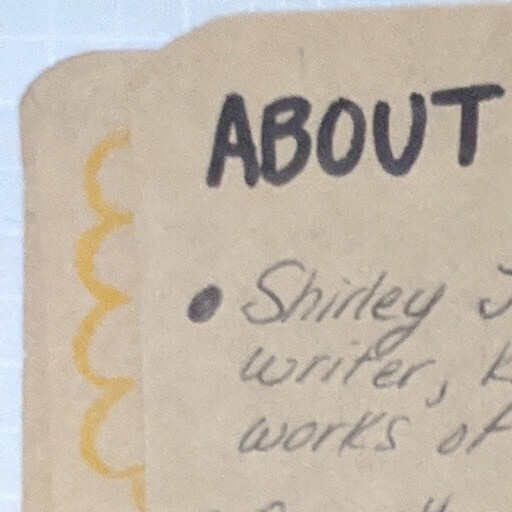 ABOUT
• Shirley J
writer, k
works of